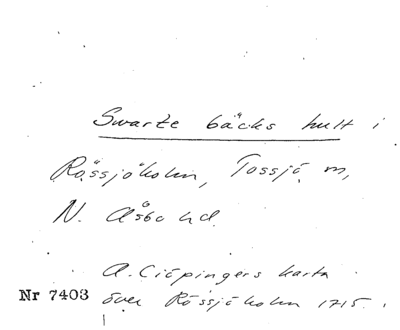 Swarte bäcks hult i
Rössjöholm, Tossjö m,
N. Åsbo hd.
A. Ciöpingers karta
Nr 7403 över Rössjöholm 1715.